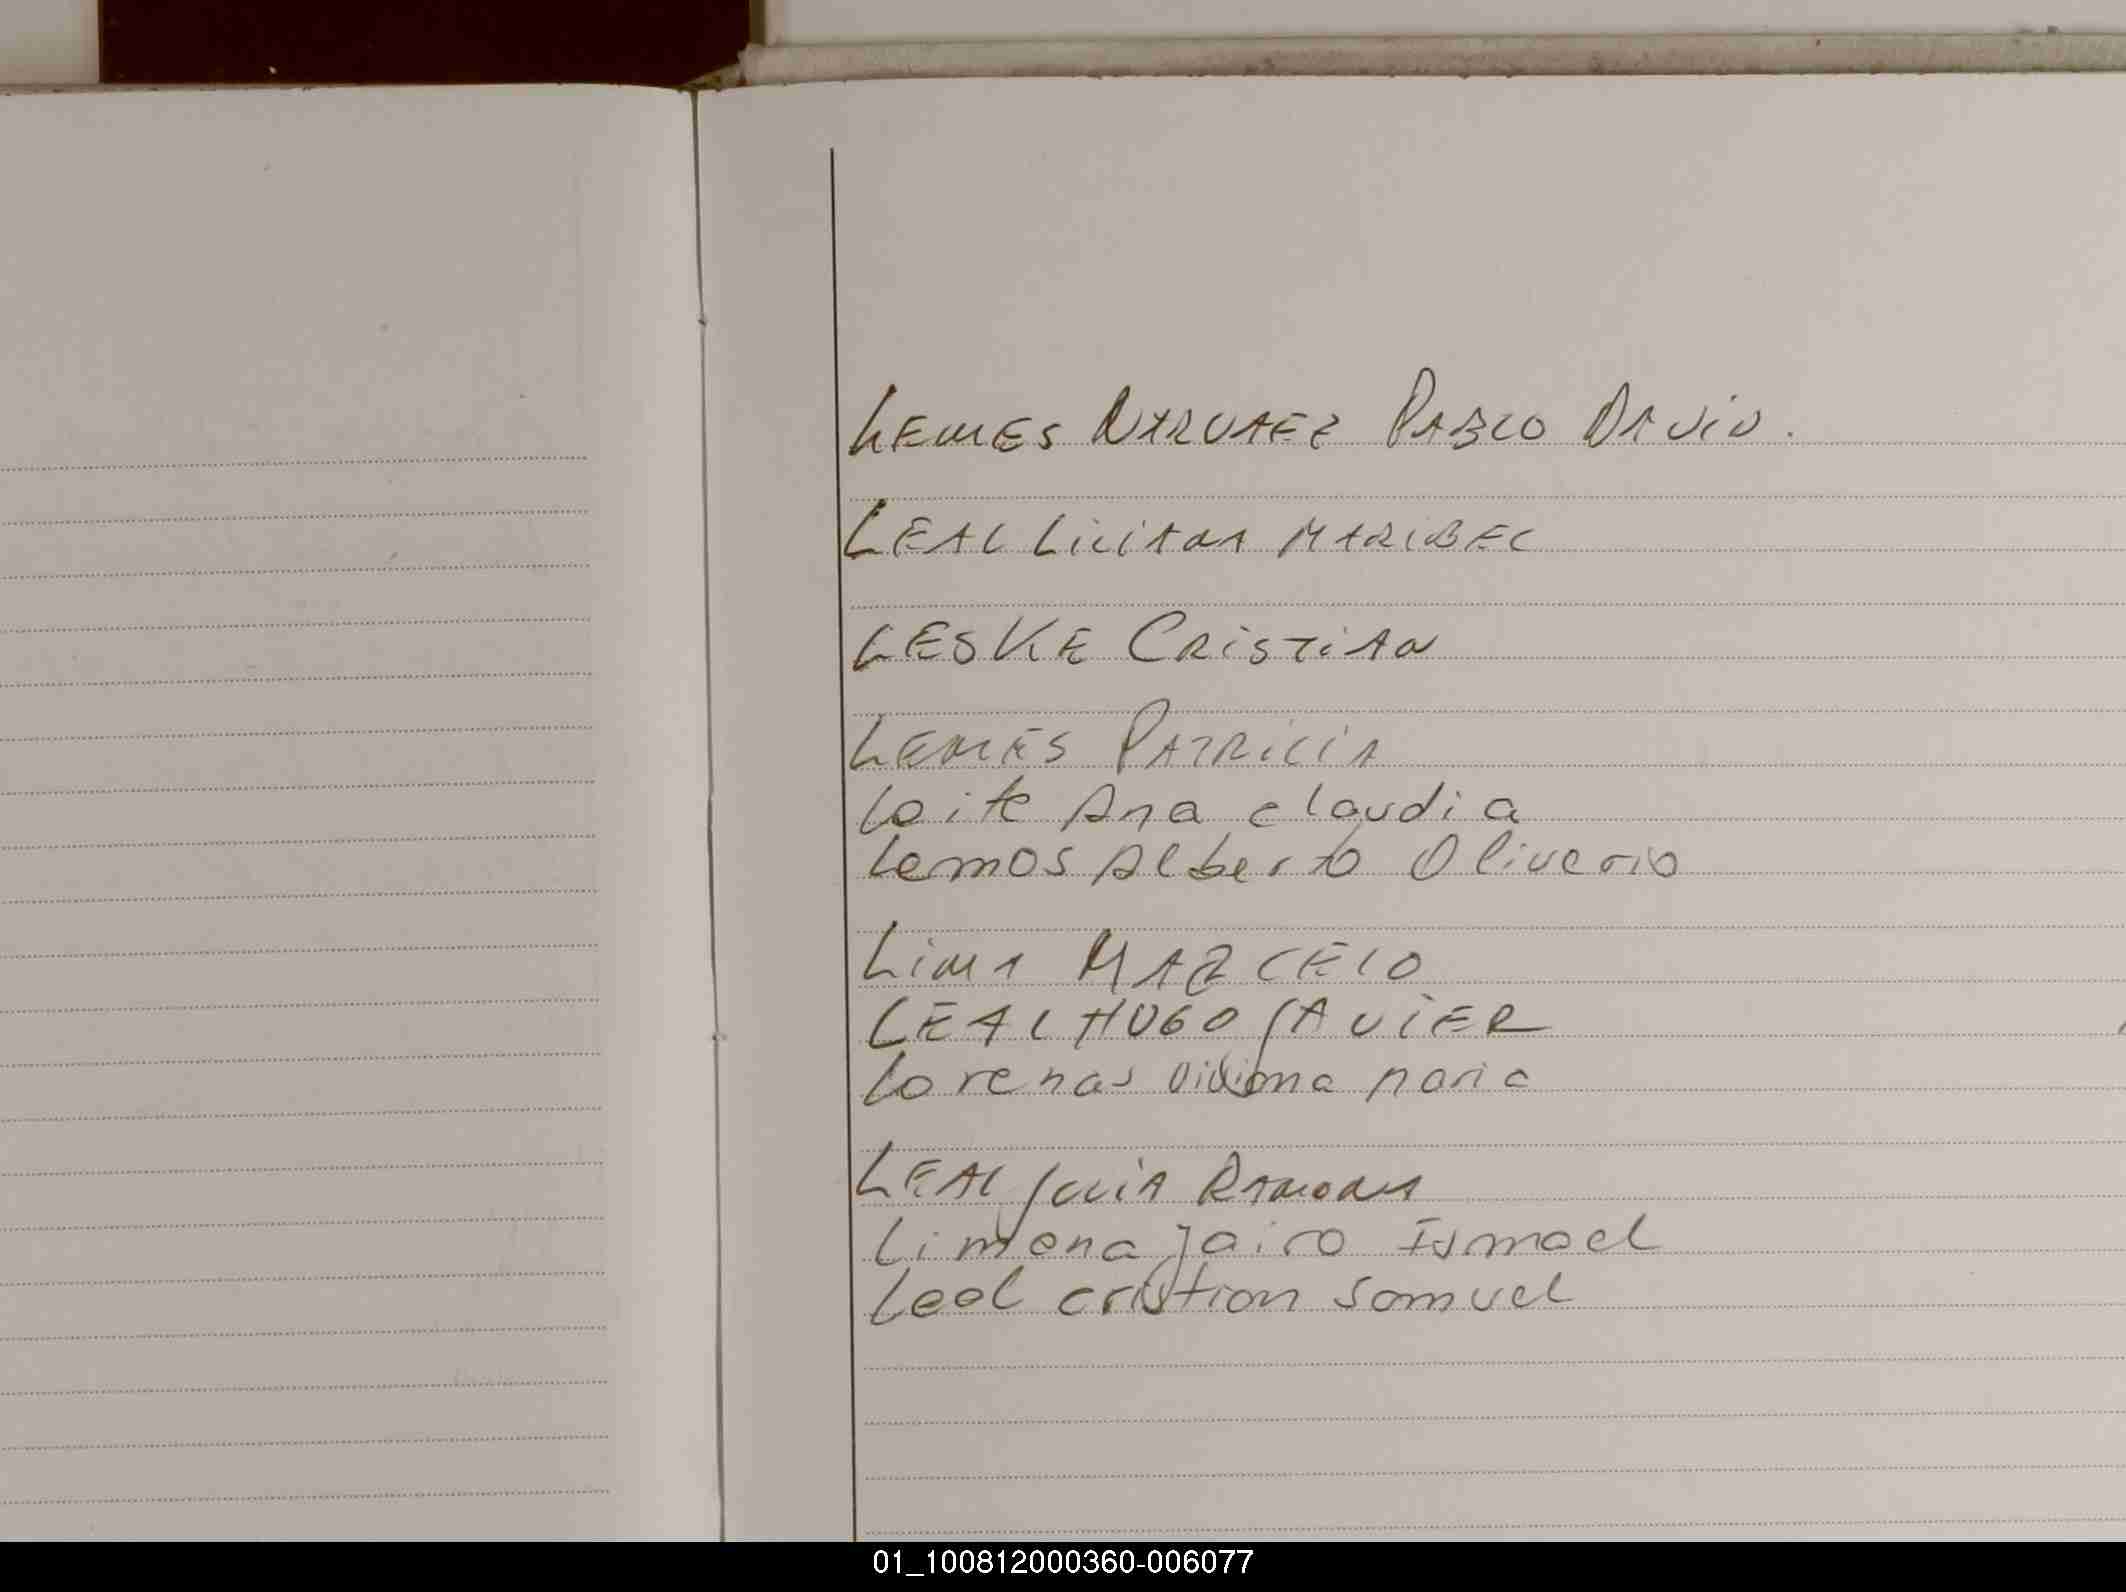 LEMES NARVAEZ PABLO DAVID.
LEAL LILIANA MARIBEL
LESKE CRISTIAN
LEMES PATRICIA
Leite Ana Claudia
Lemos Alberto Oliverio
LIMA MARCELO
LEAL HUGO JAVIER
Lorenas Viviana Maria
LEAL JULIA RAMONA
Limena Jairo Ismael
Leal Cristian Samuel
01_100812000360-006077